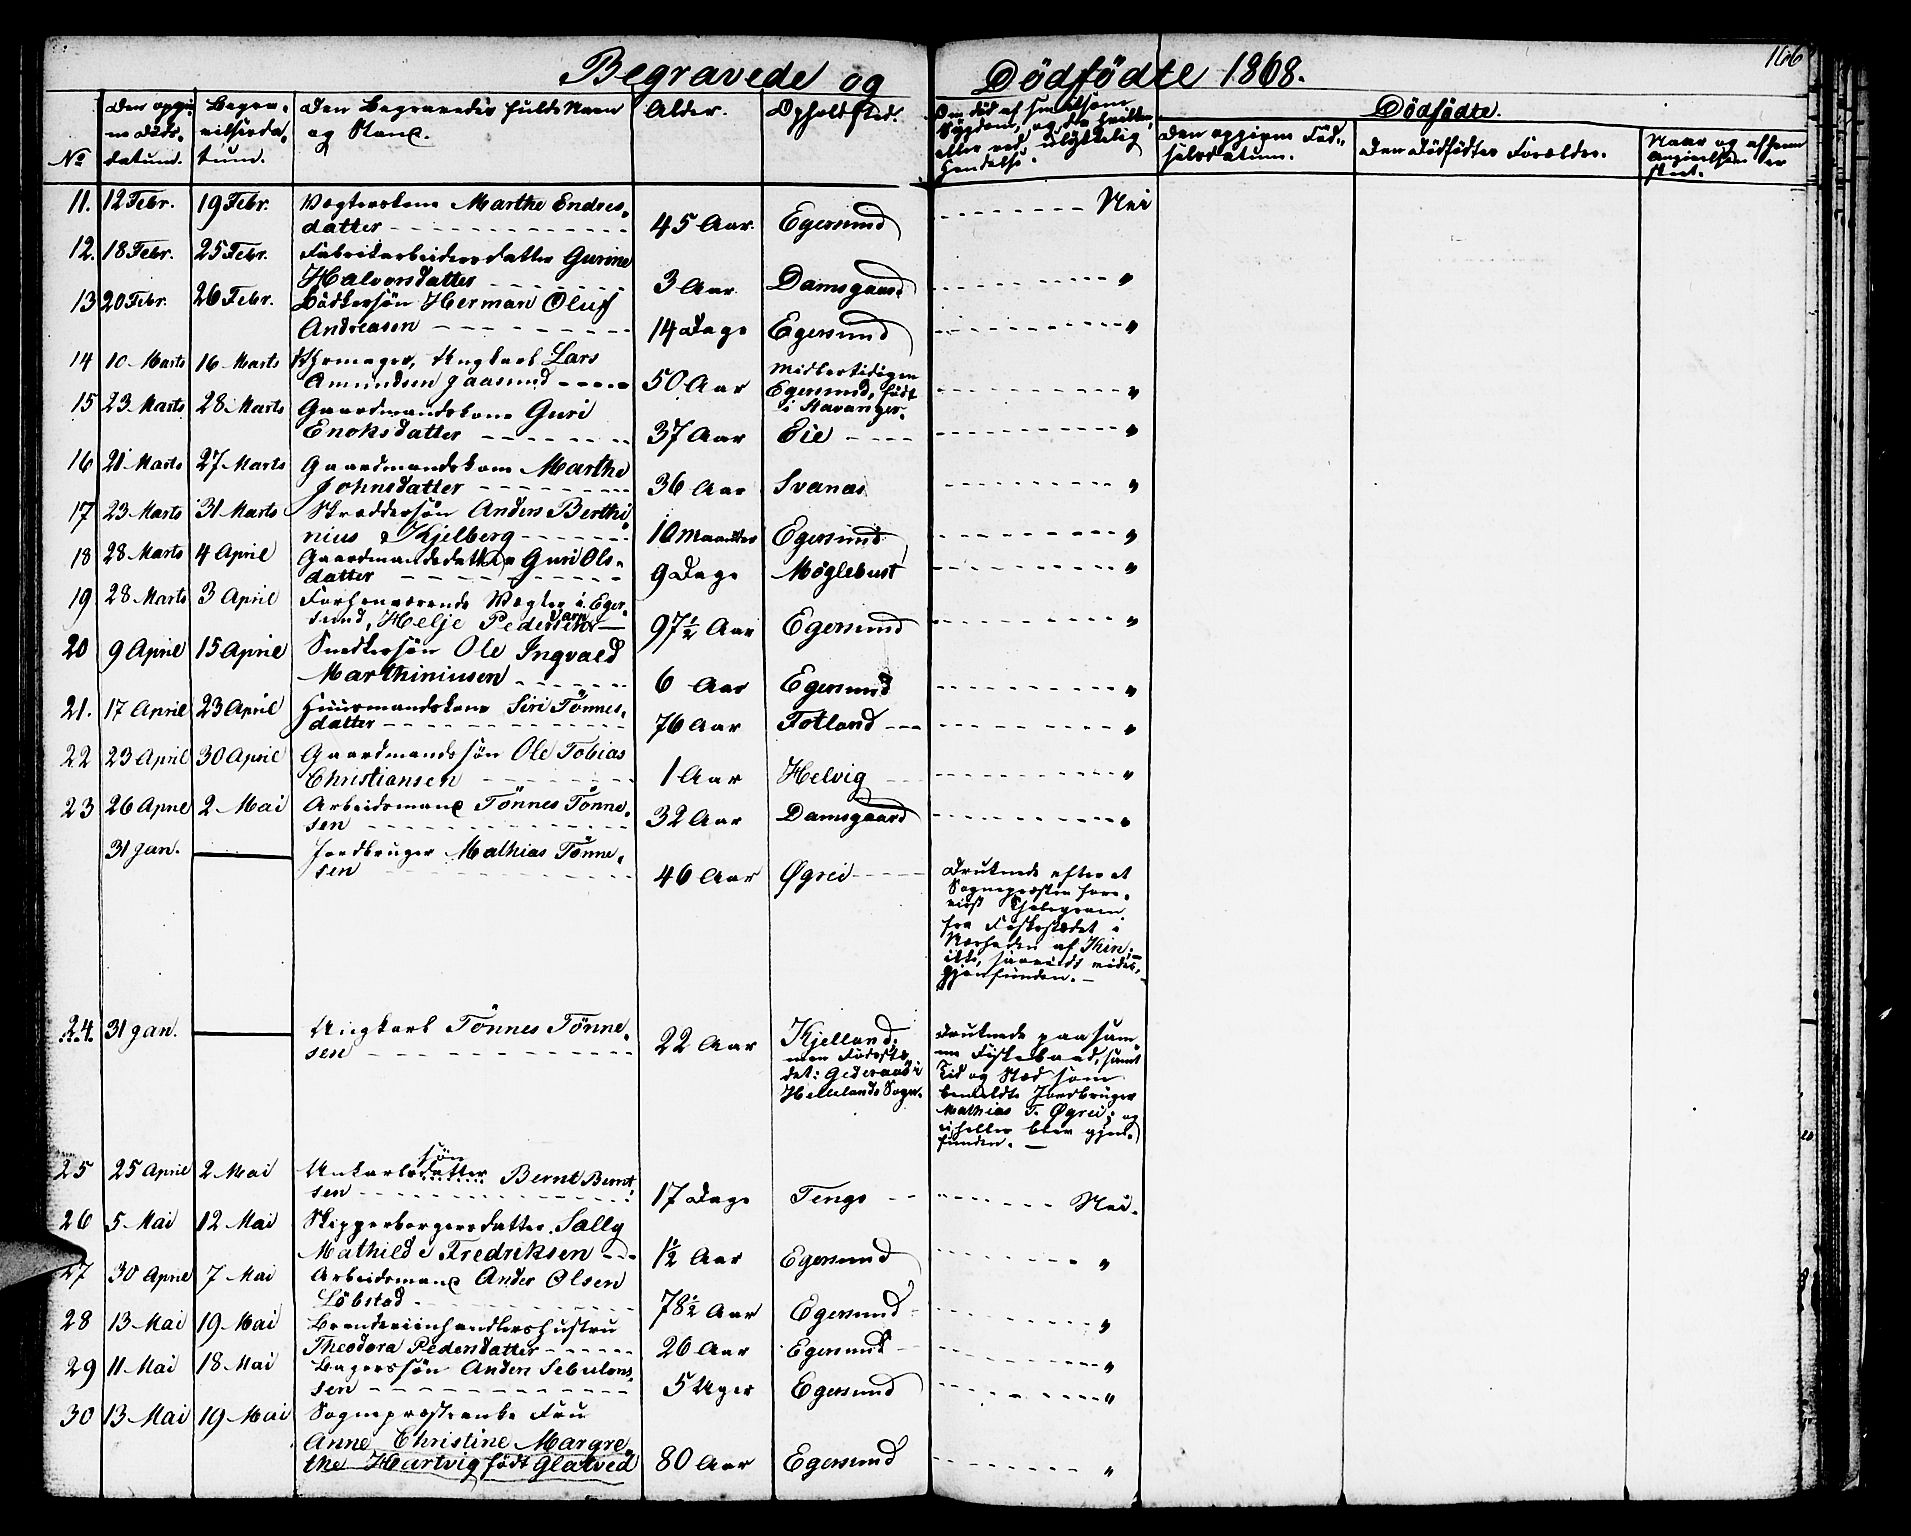 166
Begravede og Dödfödte 1868.
No
Den opgiv-
ne Döds-
datum.
Begra-
velsesda-
tum.
Den Begravedes fulde Navn
og Stand.
Alder.
Opholdsted.
Om död af smitsom
Sygdom, og da hvilken,
eller ved ulykkelig
Hendelse.
Dödfödte.
Den opgivne Föd-
selsdatum.
Den Dödfödtes Forældre.
Naar og af hvem
Anmeldelsen er
skeet.
11. 12 Febr. 19 Febr. Vægterskone Marthe Endres-
datter 45 Aar. Egersund Nei
12. 18 Febr. 25 Febr. Fabrikarbeidersdatter Gurine
Halvorsdatter 3 Aar Damsgaard "
13 20 Febr. 26 Febr. Bödkersön Herman Oluf
Andreasen 14 Dage Egersund "
14 10 Marts 16 Marts Uhrmager, Ungkarl Lars
Amundsen Gaasund 50 Aar Midlertidigen
Egersund, födt
i Stavanger. "
15 23 Marts 28 Marts Gaardmandskone Guri
Enoksdatter 37 Aar Eie "
16 21 Marts 27 Marts Gaardmandskone Marthe
Johnsdatter 36 Aar Svanæs "
17 23 Marts 31 Marts Skræddersön Anders Berthi-
nius Kjelberg 10 Maaneder Egersund "
18 28 Marts 4 April Gaardmandsdatter Guri Ols-
datter 9 Dage Møglebust "
19 28 Marts 3 April Forhenværende Vægter i Eger-
sund, Helje Pedersen 97½ Aar Egersund "
20 9 April 15 April Snedkersön Ole Ingvald
Marthiniusen 6 Aar Egersund "
21. 17 April 23 April Huusmandskone Siri Tönnes-
datter 76 Aar Fotland "
22 23 April 30 April Gaardmandssön Ole Tobias
Christiansen 1 Aar Helvig "
23 26 April 2 Mai Arbeidsmand Tönnes Tönne-
sen 32 Aar Damsgaard "
31 Jan. Jordbruger Mathias Tönne-
sen 46 Aar Øgrei Druknede efter et
Sognepræsten fore-
viist Telegram
fra Fiskestedet i
Nærheden af Kin;
ikke, saavidt vides,
gjenfunden.
24. 31 Jan. Ungkarl Tönnes Tönne-
sen 22 Aar Kjelland,
men Födeste-
det: Gederaas i
Hellelands Sogn. Druknede paa sam-
me Fiskebaad, samt
Tid og Sted som
bemeldte Jordbruger
Mathias T. Øgrei; og
ei heller blev gjen-
funden.
25 25 April 2 Mai Unkarlsdatter sön Bernt Bernt-
sen 17 Dage Tengs Nei.
26 5 Mai 12 Mai Skipperborgersdatter Sally
Mathilde Fredriksen 1½ Aar Egersund "
27 30 April 7 Mai Arbeidsmand Ander Olsen
Löbstad 78½ Aar Egersund "
28 13 Mai 19 Mai Brændeviinhandlershustru
Theodora Pedersdatter 26 Aar Egersund "
29 11 Mai 18 Mai Bagerssön Anders Sebulons-
sen 5 Uger Egersund "
30 13 Mai 19 Mai Sognepræstenke Fru
Anne Christine Margre-
the Hartvig födt Glatved 80 Aar Egersund "